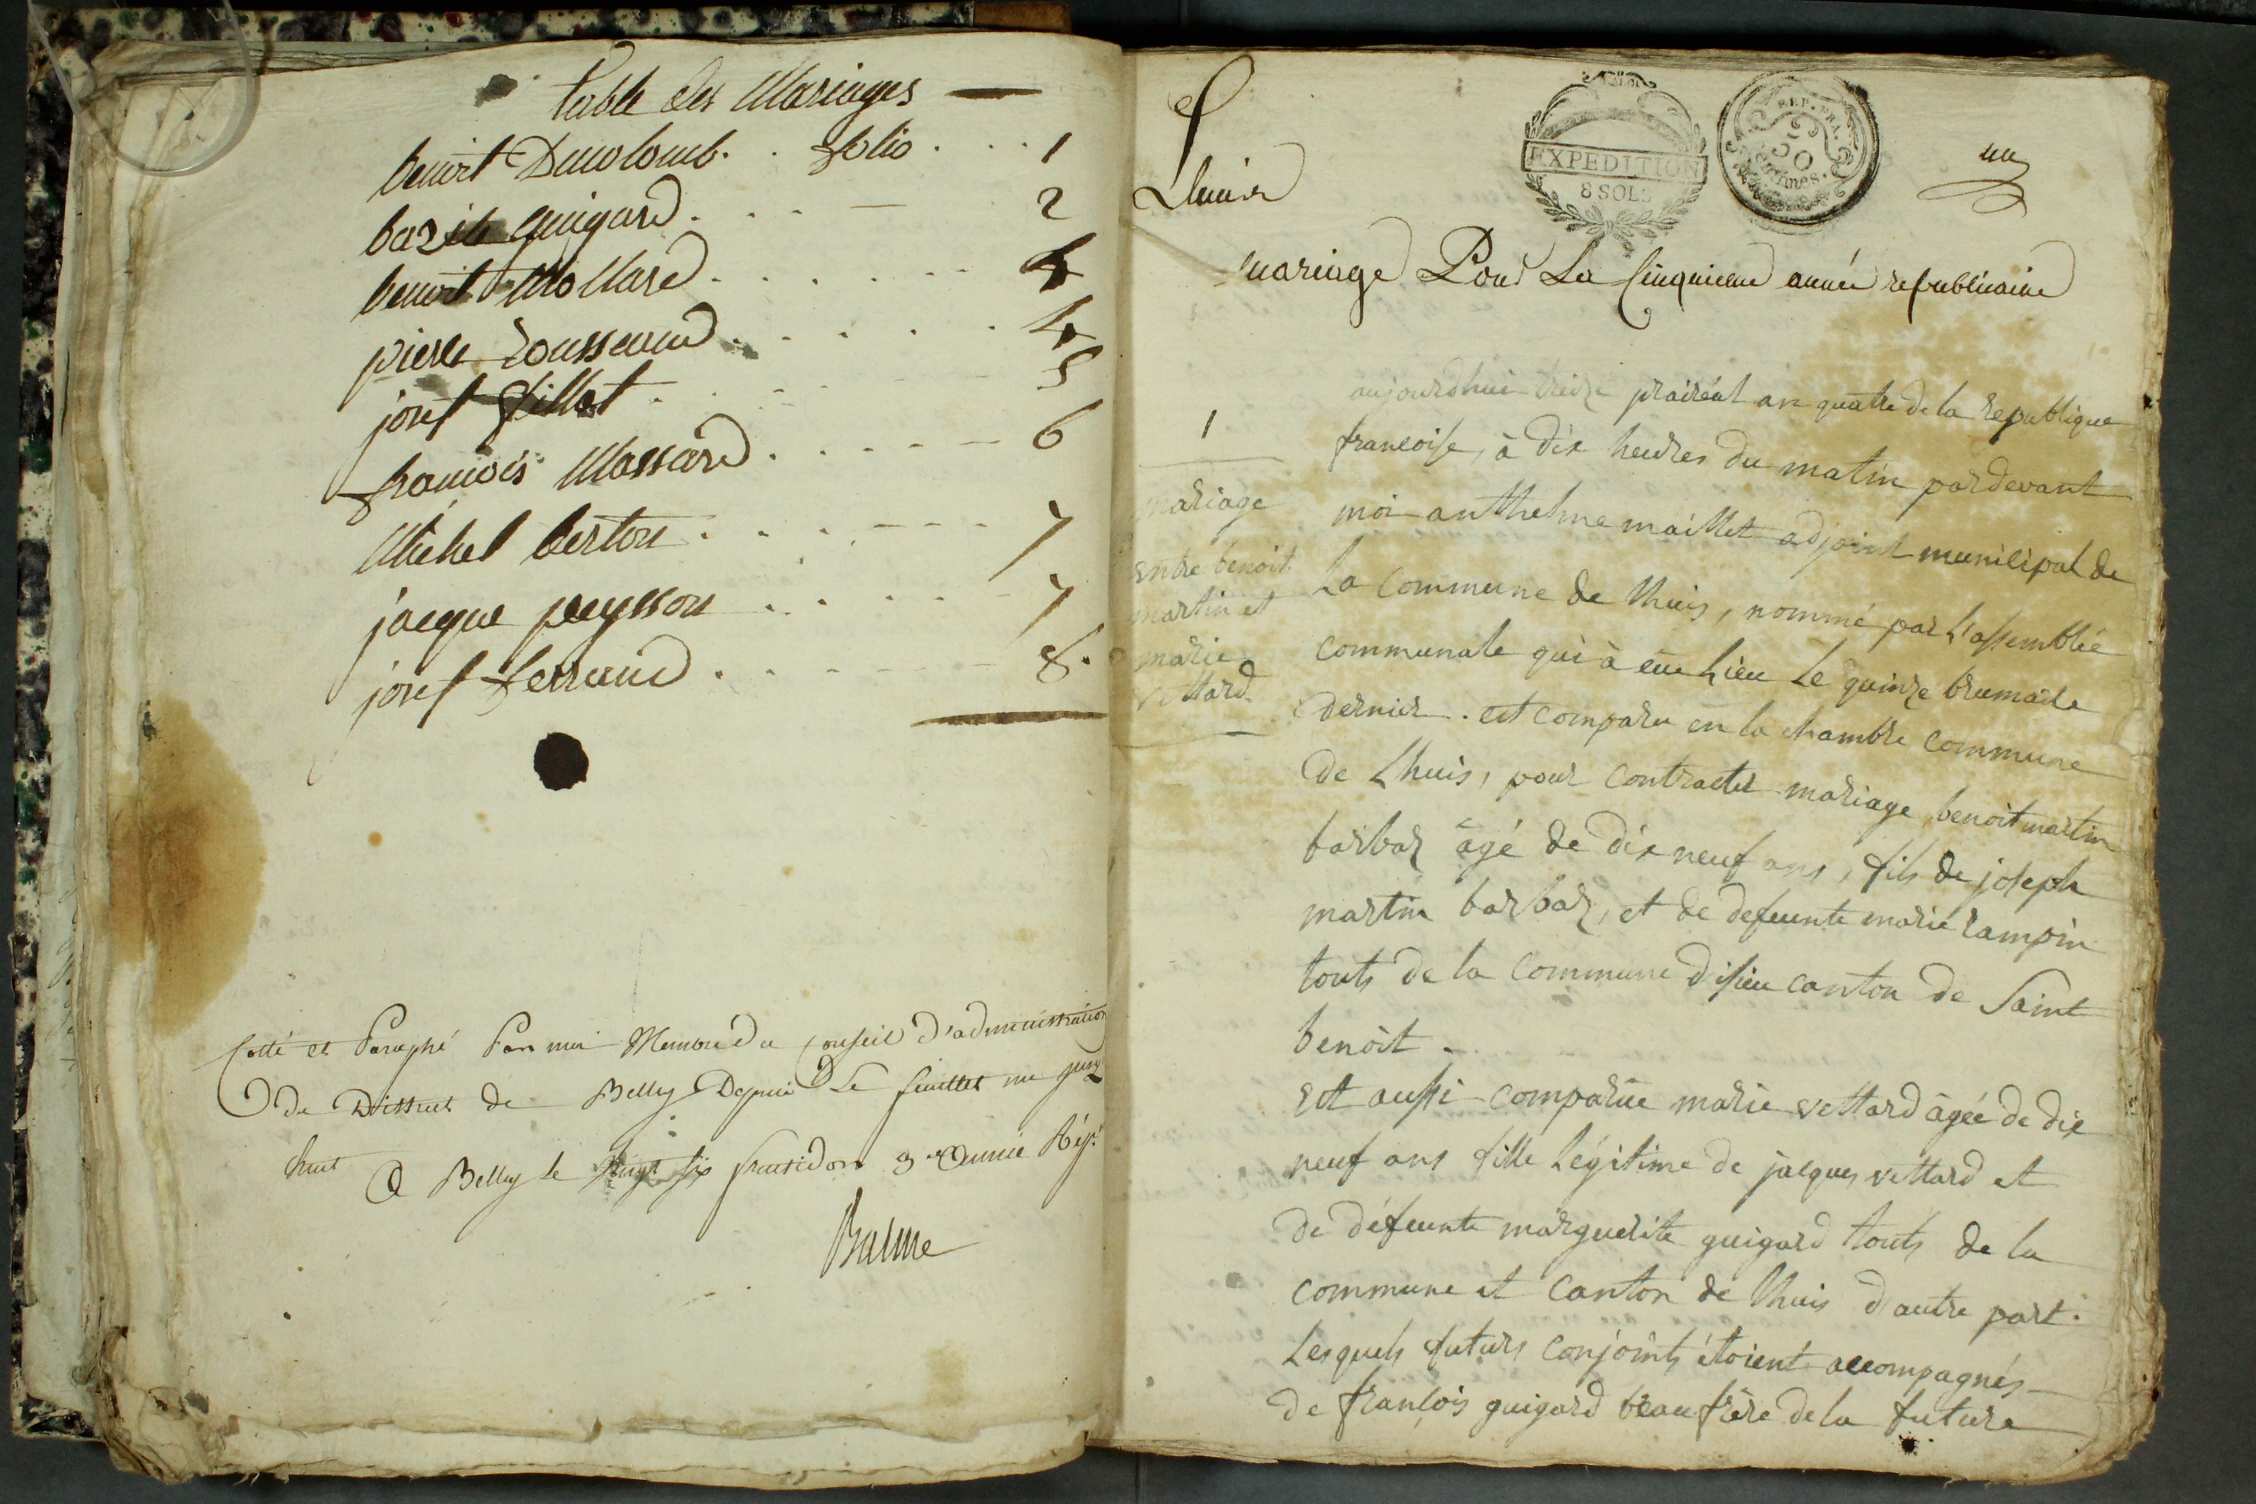 table des Mariages
benoit Ducolomb . . folio . . . 1
bazile guigard . . . 2
benoit Mollard . . . 4
pierre Loussaud . . . 4
josef fillet . . . 5
francois Massard . . . 6
Michel berton . . . 7
jacque peysson . . . 7
josef ferrand . . . 8.
Cotté et Paraphé Par moi Membre du Conseil d'administration
De District de Belley Depuis Le feuillet un jusq
huit A Belley le vingt six fructidor 3e année Rép.
Balme
Lhuis
EXPEDITION
8 SOLS
REP. FRA.
50
Centimes.
un
mariage Pour La Cinquieme année republicaine
1
mariage
entre benoit
martin et
marie
vettard
aujourdhui treize prairéal an quatre de la republique
francoise, à dix heures du matin pardevant
moi anthelme maillet adjoint municipal de
La Commune de lhuis, nommé par l'assemblée
communale qui à eue Lieu Le quinze brumaile
dernier. est comparu en la chambre commune
de Lhuis, pour contracter mariage benoit martin
barbar âgé de dix neuf ans, fils de joseph
martin barbar, et de defeunte marie rampin
touts de la Commune disieu canton de Saint
benoit.
est aussi comparüe marie vettard âgée de dix
neuf ans fille Légitime de jacques vettard et
de défeunte marguerite guigard touts de la
commune et canton de lhuis d'autre part.
Lesquels futurs conjoints étoient accompagnés
de francois guigard beaufrère dela future